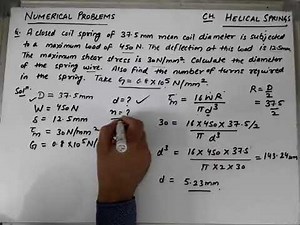 NUMERICAL PROBLEMS
CH HELICAL SPRINGS
Q. A closed coil spring of 37.5mm mean coil diameter is subjected
to a maximum load of 450N. The deflection at this load is 12.5mm.
The maximum shear stress is 30N/mm². Calculate the diameter
of the spring wire. Also find the number of turns required
in the spring. Take G = 0.8 × 10⁵ N/mm².
Solⁿ
D = 37.5mm
W = 450N
δ = 12.5mm
τm = 30N/mm²
G = 0.8 × 10⁵ N/mm²
d = ?
n = ?
τm = 16WR / πd³
R = D/2
= 37.5/2
30 = 16 × 450 × 37.5/2 / π d³
d³ = 16 × 450 × 37.5 / π × 2 × 30 = 143.24mm
d = 5.23mm